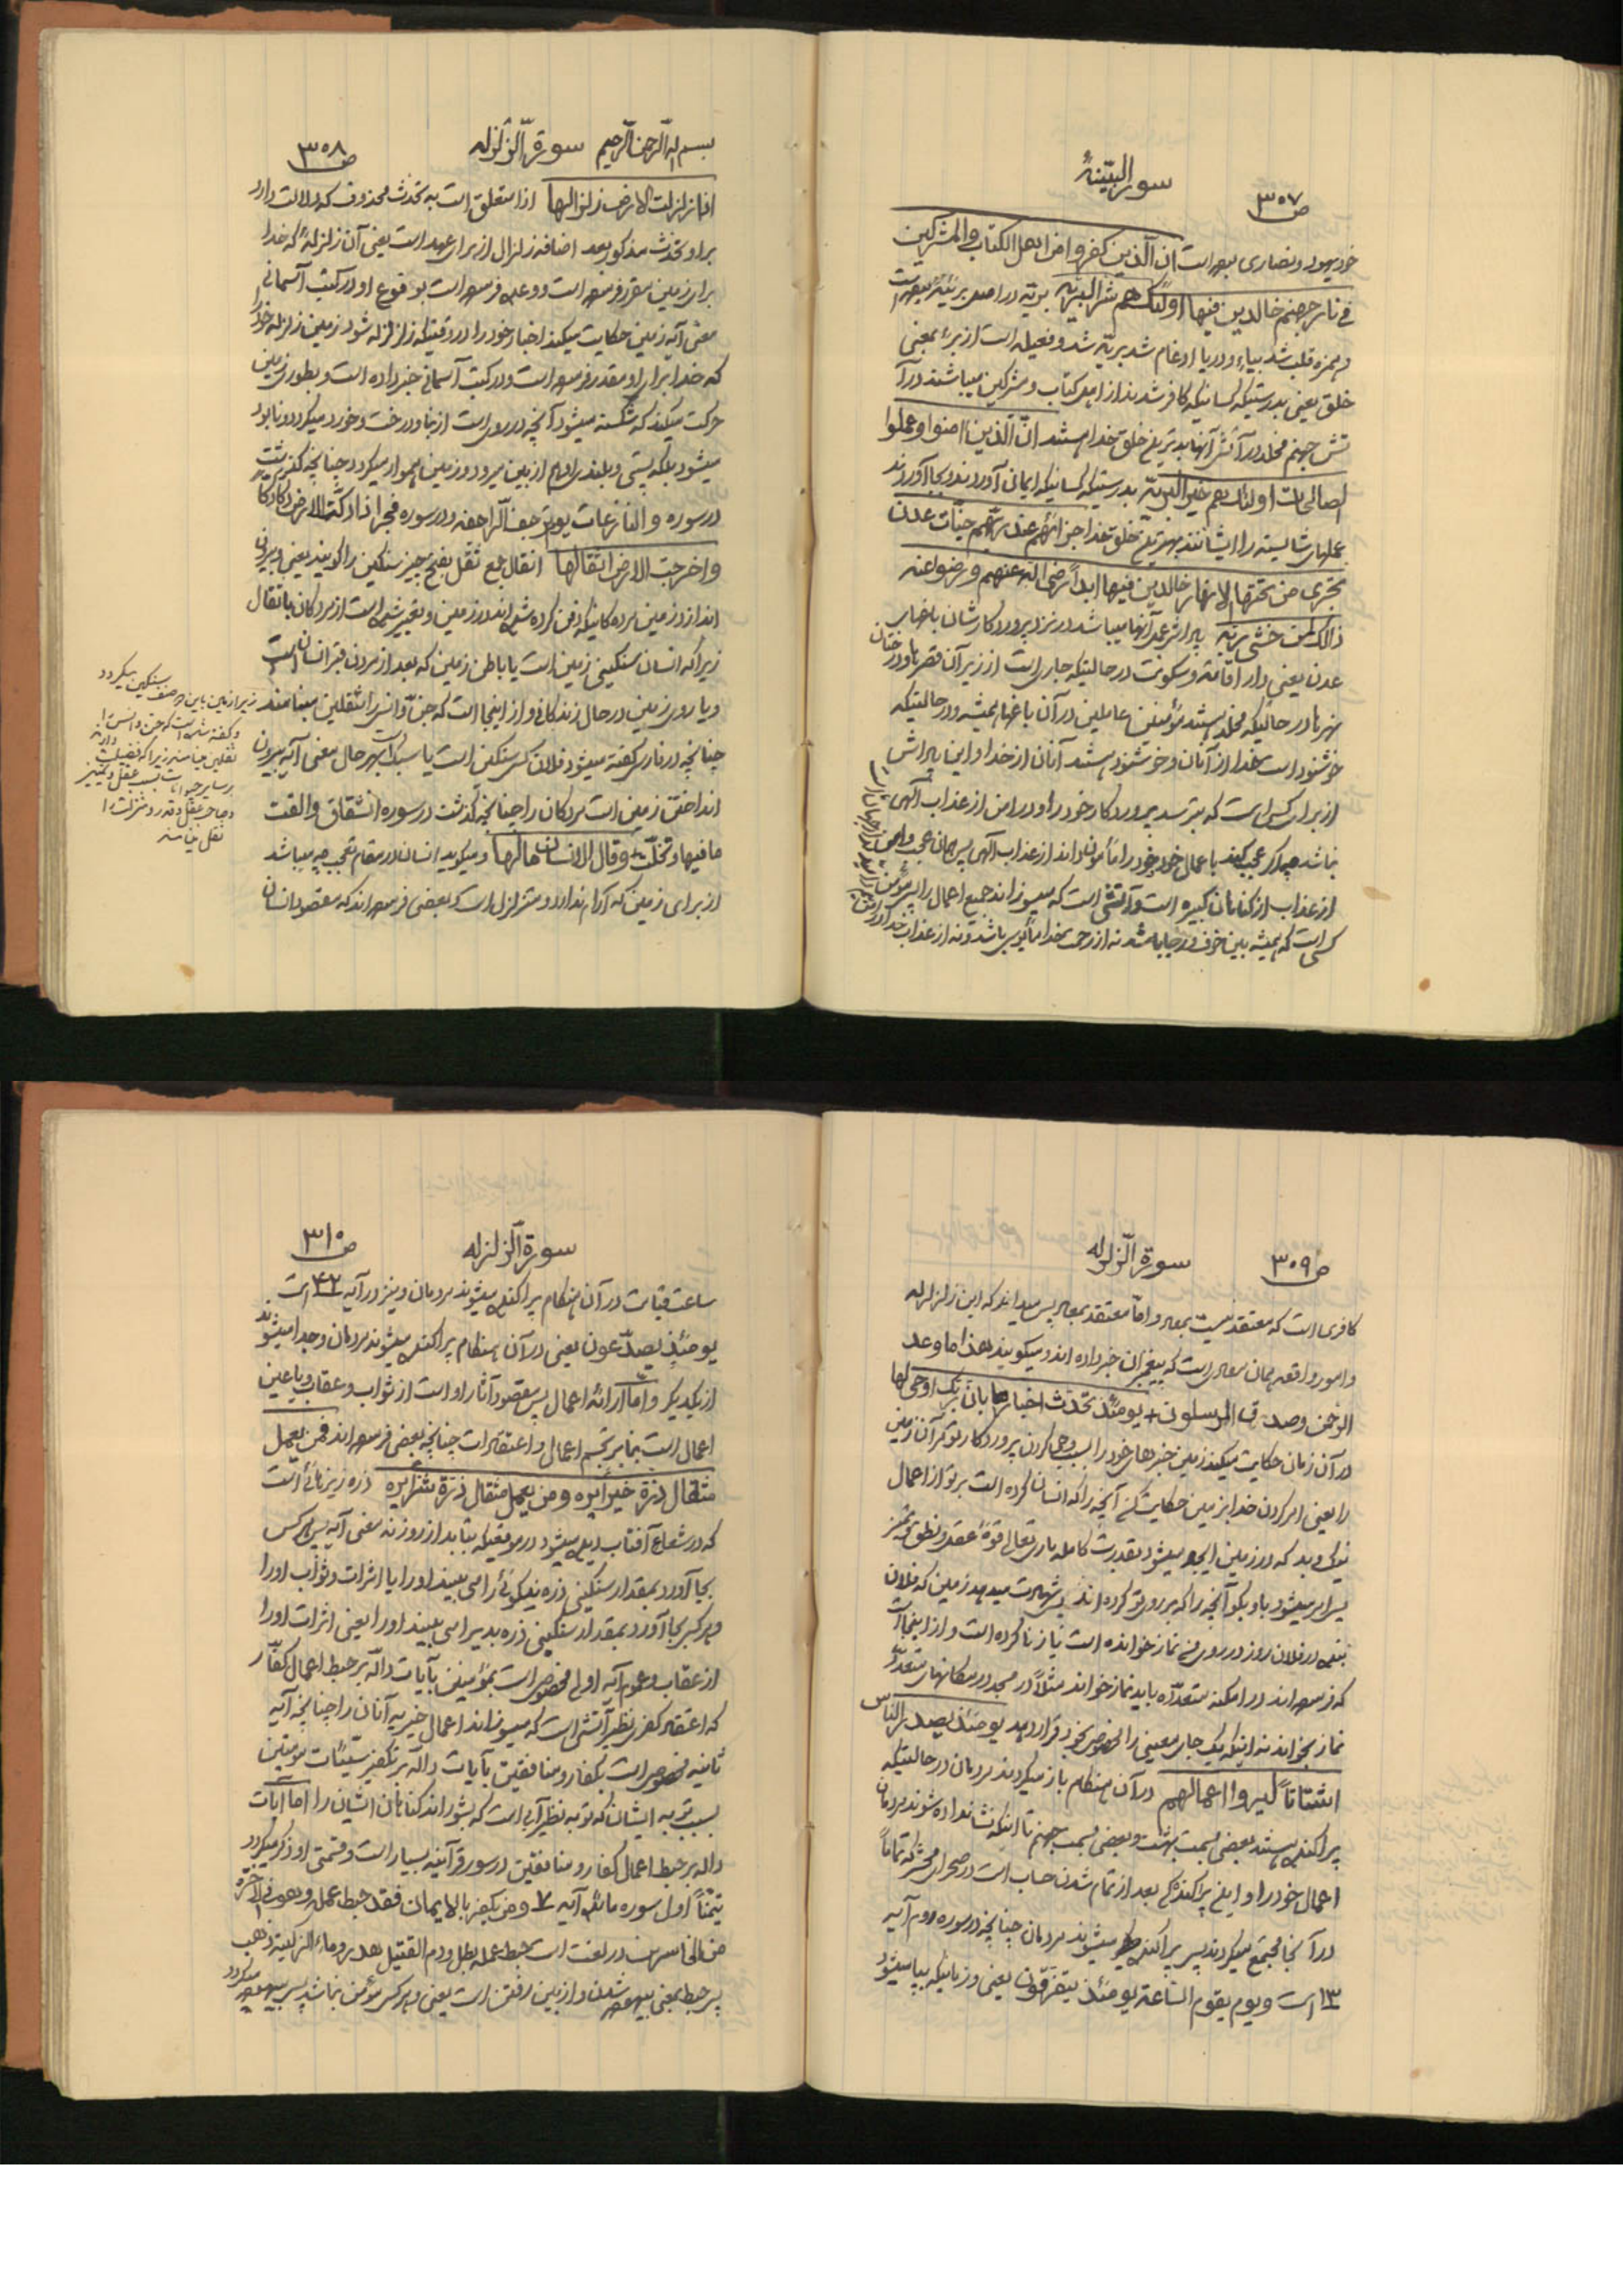 ص ۳۰۷
سورة البیّنة
خود یهود و نصاری بوده است ان الّذین کفروا من اهل الکتاب و المشرکین
فی نار جهنم خالدین فیها اولئک هم شرّ البریّه بریّه در اصل بریئة بوده است
و همزه قلب شد بیاء و در یا ادغام شد بریّه شد و فعیله است از برء بمعنی
خلق یعنی بدرستیکه کسانیکه کافر شدند از اهل کتاب و مشرکین میباشند در آ
تش جهنم مخلد در آتش آنها بدترین خلق خدا هستند انّ الّذین امنوا و عملوا
الصالحات اولئک هم خیر البریّه بدرستیکه کسانیکه ایمان آوردند و بجا آوردند
عملهای شایسته را ایشانند بهترین خلق خدا جزائهم عند ربّهم جنّات عدن
تجری من تحتها الانهار خالدین فیها ابداً رضی الله عنهم و رضوا عنه
ذالک لمن خشی ربّه پاداش عمل آنها میباشد در نزد پروردگارشان باغهای
عدن یعنی دار اقامة و سکونت در حالتیکه جاری است از زیر آن قصرها و درختان
نهرها در حالتیکه مخلد هستند مؤمنین عاملین در آن باغها همیشه و در حالتیکه
خوشنود است خدا از آنان و خوشنود هستند آنان از خدا و این پاداش
از برای کسی است که بترسد پروردگار خود را و در امن از عذاب الهی
نباشد چه اگر عجب کند باعمال خود و خود را مأمون داند از عذاب الهی پس همان عجب و امن
از عذاب از گناهان کبیره است و آتشی است که میسوزاند جمیع اعمال را پس مؤمن
کسی است که همیشه بین خوف و رجا باشد نه از رحمت خدا مأیوس باشد و نه از عذاب خدا در امن
ص ۳۰۸
بسم الله الرّحمن الرّحیم سورة الزّلزله
اذا زلزلت الارض زلزالها اذا متعلق است به تحدّث محذوف که دلالت دارد
بر او تحدّث مذکور بعد اضافه زلزال از برای عهد است یعنی آن زلزلهٔ که خدا
برای زمین مقرر فرموده است و وعده فرموده است بوقوع او در کتب آسمانی
معنی آیه زمین حکایت میکند اخبار خود را در وقتیکه زلزله شود زمین زلزله خود را
که خدا برای او مقدر فرموده است و در کتب آسمانی خبر داده است و بطوری زمین
حرکت میکند که شکسته میشود آنچه در روی است از بنا و درخت و خورد میگردد و نابود
میشود بلکه پستی و بلندی او هم از بین میرود و زمین هموار میگردد چنانچه گذشت
در سوره و النازعات یوم ترجف الرّاجفه و در سوره فجر اذا دکّت الارض دکا دکا
و اخرجت الارض اثقالها اثقال جمع ثقل بفتح چیز سنگین را گویند یعنی و بیرون
اندازد زمین مرده گانیکه دفن کرده شده اند در زمین و تعبیر شده است از مردگان باثقال
زیرا که انسان سنگینی زمین است یا باطن زمین که بعد از مردن قبر انسان است
و یا روی زمین در حال زندگانی و از اینجا است که جنّ و انس را ثقلین مینامند
چنانچه در فارسی گفته میشود فلان کس سنگین است یا سبک است بهر حال معنی آیه بیرون
انداختن زمین است مردگان را چنانچه گذشت در سوره انشقاق و القت
ما فیها و تخلّت و قال الانسان مالها و میگوید انسان در مقام تعجب چه میباشد
از برای زمین که آرام ندارد و متزلزل است که بعضی فرموده اند که مقصود انسان
زیرا زمین باین دو صنف سنگین میگردد
و گفته شده است که جن و انس را
ثقلین مینامند زیرا که فضیلت دارند
بر سایر حیوانات بسبب عقل و تمیز
و صاحب عقل و قدر و منزلت را
ثقل مینامند
ص ۳۰۹
سورة الزّلزله
کافری است که معتقد نیست بمعاد و امّا معتقد بمعاد پس میداند که این زلزله
و امور واقعه همان معادی است که پیغمبران خبر داده اند و میگویند هذا ما وعد
الرحمن و صدق المرسلون یومئذ تحدّث اخبارها بانّ ربّک اوحی لها
در آن زمان حکایت میکند زمین خبرهای خود را بسبب وحی کردن پروردگار تو گرآن زمین
را یعنی امر کردن خدا بزمین حکایت کن آنچه را که انسان کرده است بر تو از اعمال
نیک و بد که در زمین ایجاد میشود بقدرت کامله باری تعالی قوّهٔ عقد و نطق و تمیز
پس امر میشود باو بگو آنچه را که بر روی تو کرده اند پس شهادت میدهد زمین که فلان
بنده در فلان روز در روی من نماز خوانده است یا زنا کرده است و از اینجا است
که فرموده اند در امکنه متعدّده باید نماز خواند مثلاً در مسجد در مکانهای متعدّد
نماز بخواند نه اینکه یک جای معینی را مخصوص بخود قرار دهد یومئذ یصدر النّاس
اشتاتاً لیروا اعمالهم در آن هنگام باز میگردند مردمان در حالتیکه
پراکنده هستند بعضی بسمت بهشت و بعضی بسمت جهنم تا اینکه نشان داده شوند مردمان
اعمال خود را و این پراکندگی بعد از تمام شدن حساب است در صحرای محشر که تماماً
در آنجا مجتمع میگردند پس پراکنده میشوند مردمان چنانچه در سوره روم آیه
۱۳ است و یوم یقوم السّاعة یومئذ یتفرّقون یعنی و زمانیکه بپا میشود
ص ۳۱۰
سورة الزلزله
ساعت قیامت در آن هنگام پراکنده میشوند مردمان و نیز در آیه ۴۲ است
یومئذ یصدّعون یعنی در آن هنگام پراکنده میشوند مردمان و جدا میشوند
از یکدیگر و امّا ارائهٔ اعمال پس مقصود آثار او است از ثواب و عقاب و یا عین
اعمال است بنابر تجسّم اعمال و اعتقادات چنانچه بعضی فرموده اند فمن یعمل
مثقال ذرة خیراً یره و من یعمل مثقال ذرّة شرّاً یره ذره ریزهائی است
که در شعاع آفتاب دیده میشود در موقعیکه بتابد از روزنه معنی آیه پس هر کس
بجا آورد بمقدار سنگینی ذره نیکوئی را می بیند او را یا اثرات و ثواب او را
و هر کس بجا آورد بمقدار سنگینی ذره بدی را می بیند او را یعنی اثرات او را
از عقاب و عموم آیه اولی مخصوص است بمؤمنین بآیات دالّه بر حبط اعمال کفّار
که اعتقاد کفری نظیر آتشی است که میسوزاند اعمال خیریه آنان را چنانچه آیه
ثانیه مخصوص است بکفار و منافقین بآیات دالّه بر تکفیر سیّئات مؤمنین
بسبب توبه ایشان که توبه نظیر آبی است که بشوراند گناهان ایشان را اما آیات
دالّه بر حبط اعمال کفار و منافقین در سور قرآنیه بسیار است و قسمتی او ذکر میگردد
تیمّناً اول سوره مائده آیه ۷ و من یکفر بالایمان فقد حبط عمله و هو فی الاخرة
من الخاسرین در لغت است حبط عمله بطل و دم القتیل هدر و ماء الرکیّة ذهب
پس حبط بمعنی بیهوده شدن و از بین رفتن است یعنی و هر کس مؤمن نباشد پس بیهوده میگردد